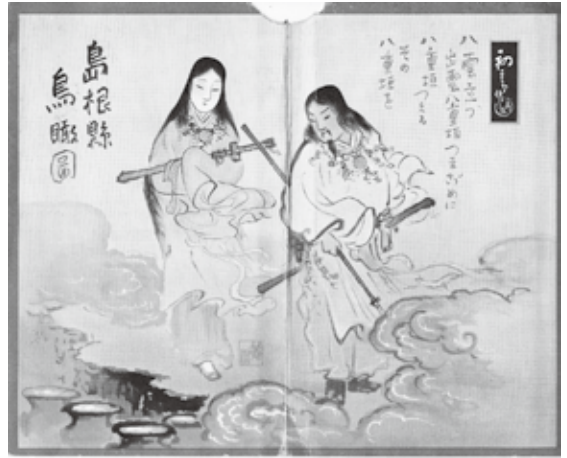 八雲立つ
出雲八重垣つまごめに
八重垣つくる
その
八重垣を
島根縣
鳥瞰圖